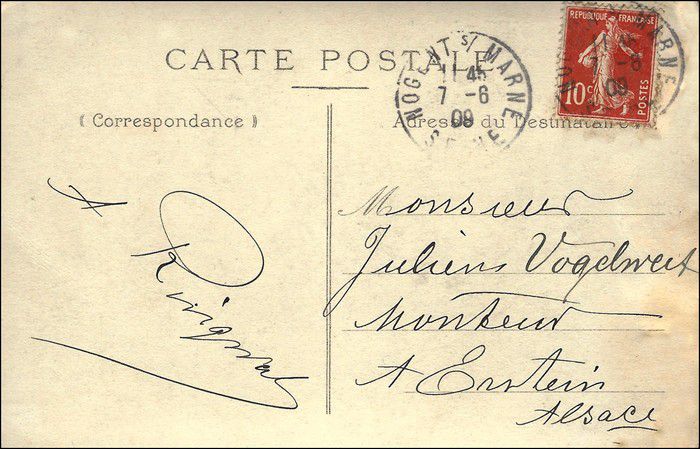 CARTE POSTALE
(Correspondance)
Adresse du Destinataire
REPUBLIQUE FRANÇAISE
10c
POSTES
NOGENT S/ MARNE
11-45
7-6
09
SEINE
MARNE
09
A
Monsieur
Juliens Vogelweit
Monteur
A Erstein
Alsace